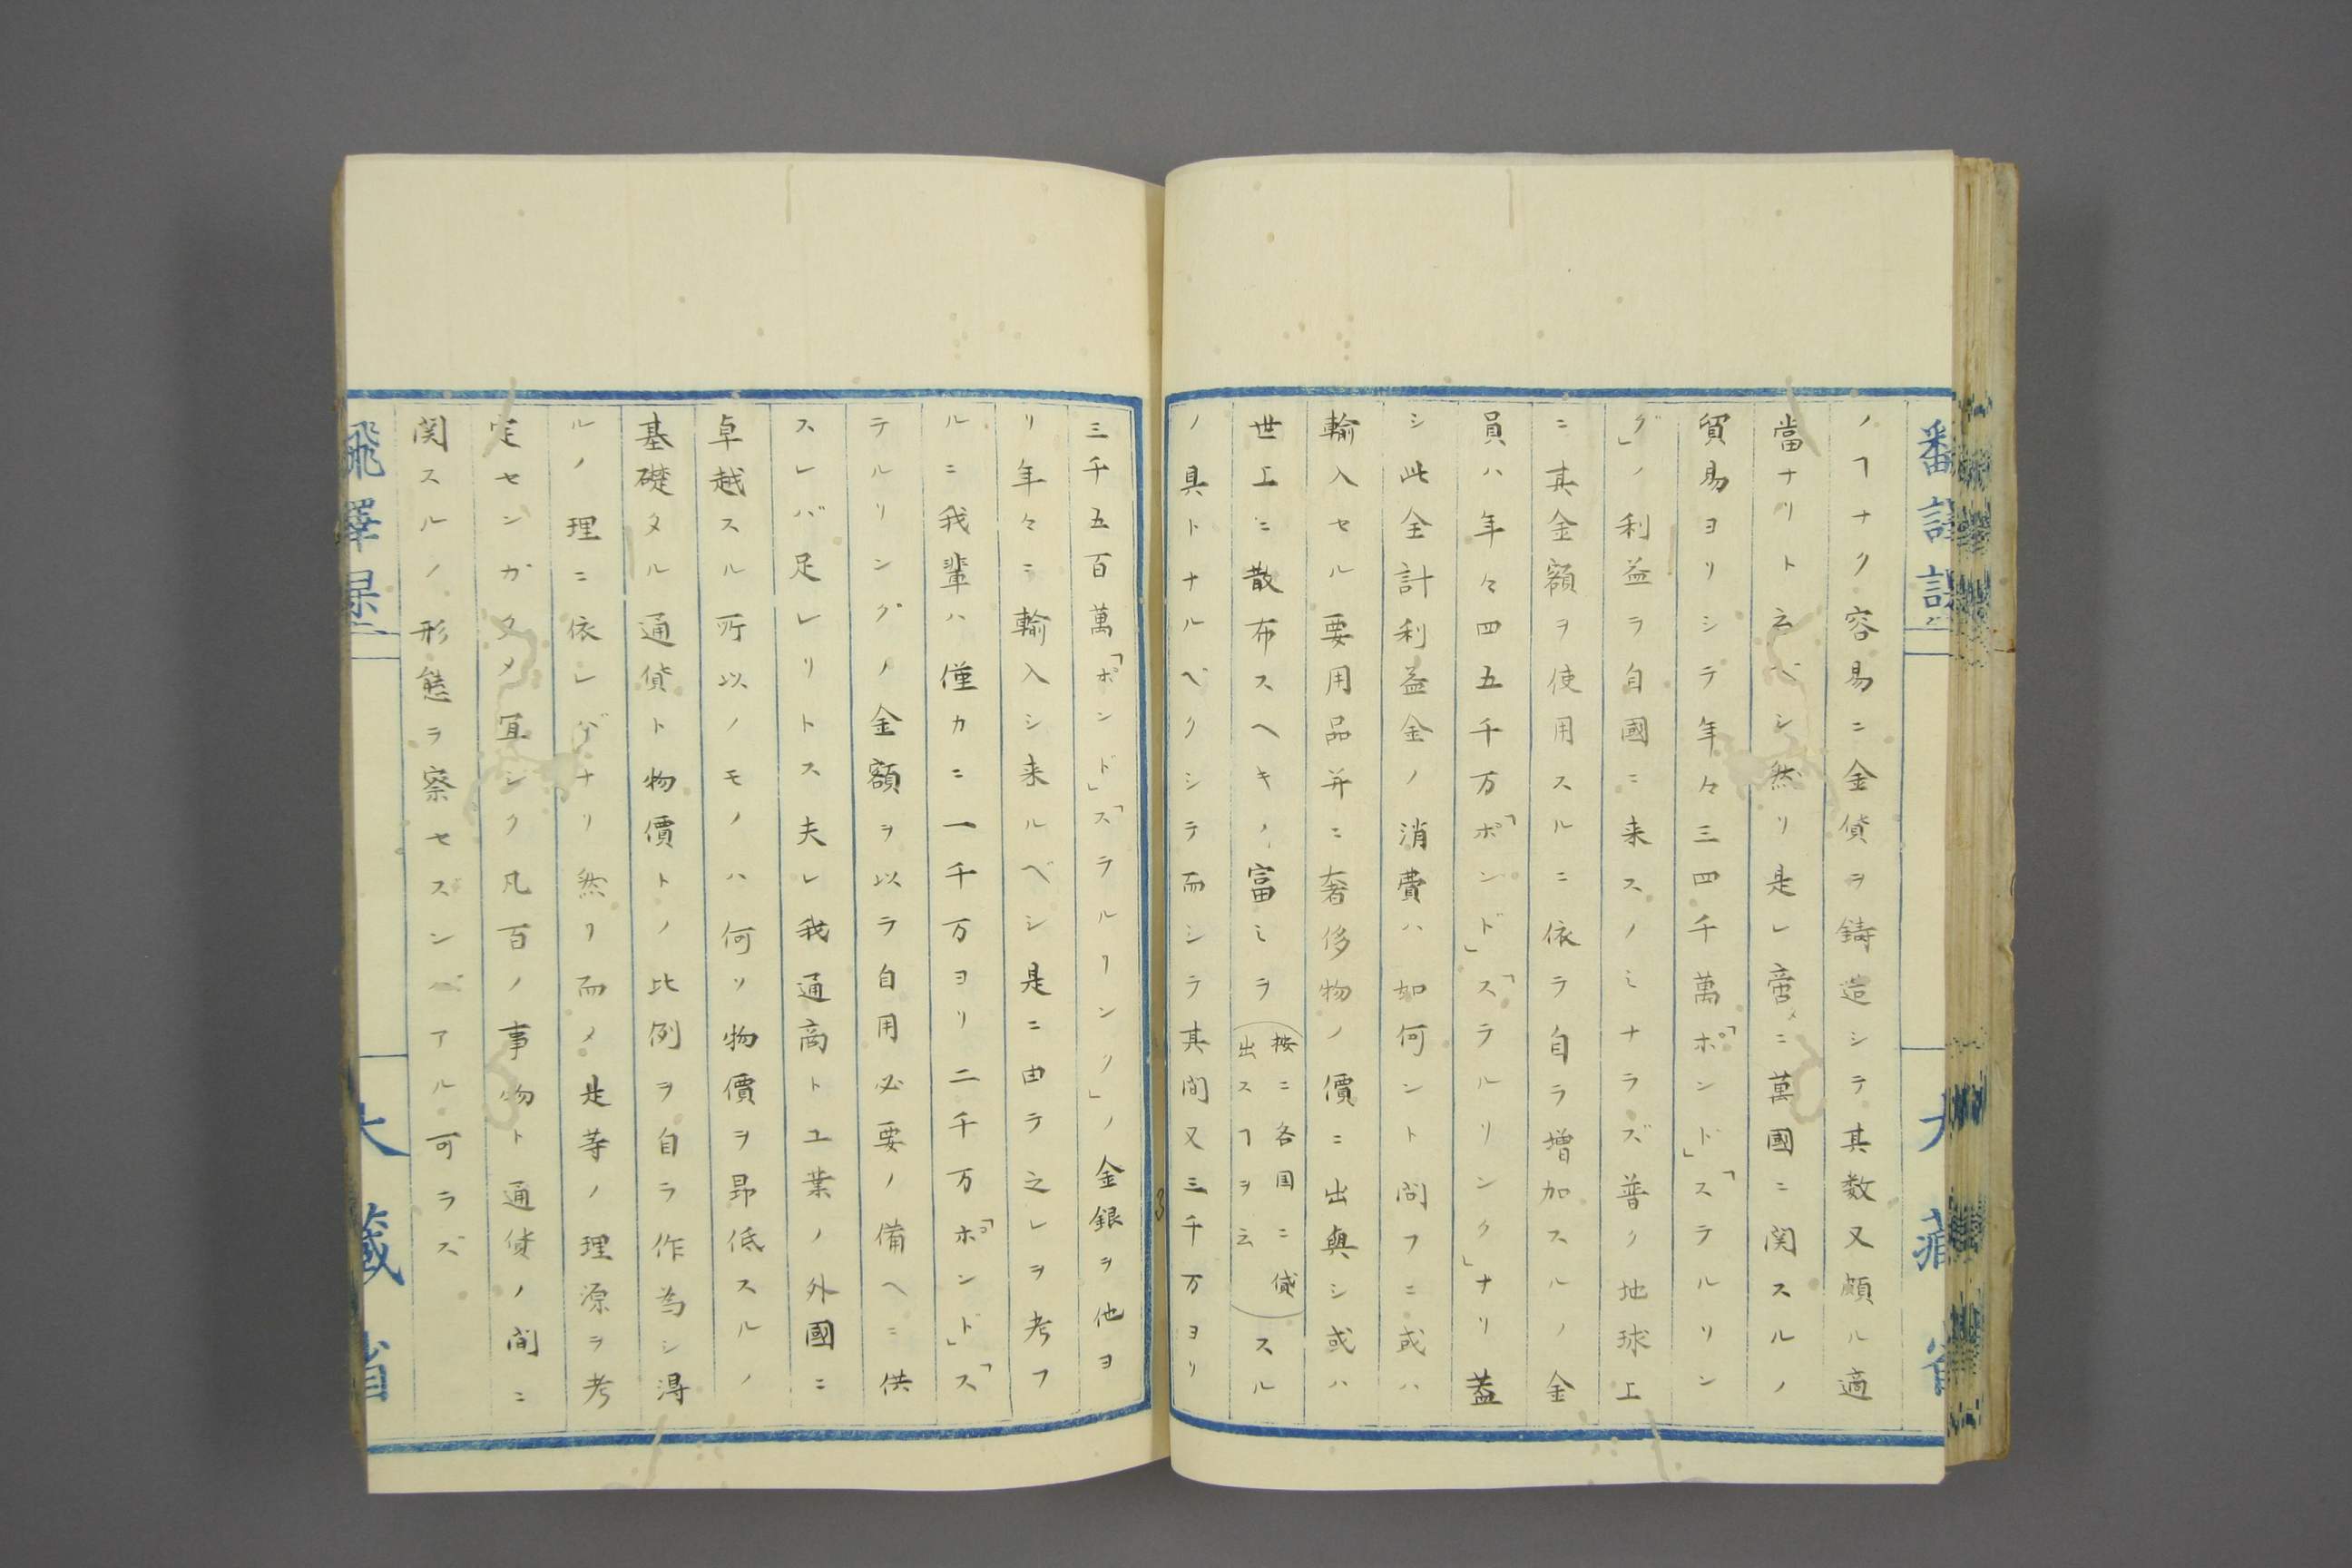 ノヿナク容易ニ金貨ヲ鋳造シテ其数又頗ル適
當ナリト云ベシ然リ是レ啻ニ萬國ニ関スルノ
貿易ヨリシテ年々三四千萬「ポンド」「ステルリン
グ」ノ利益ヲ自國ニ来スノミナラズ普ク地球上
ニ其金額ヲ使用スルニ依テ自ラ増加スルノ金
員ハ年々四五千万「ポンド」「スラルリンク」ナリ蓋
シ此全計利益金ノ消費ハ如何ント問フニ或ハ
輸入セル要用品并ニ奢侈物ノ價ニ出與シ或ハ
世上ニ散布スヘキノ富ミヲ
按ニ各国ニ貸
出スヿヲ云
スル
ノ具トナルベクシテ而シテ其間又三千万ヨリ
三千五百萬「ポンド」「スラルリンク」ノ金銀ヲ他ヨ
リ年々ニ輸入シ来ルベシ是ニ由テ之レヲ考フ
ルニ我輩ハ僅カニ一千万ヨリ二千万「ポンド」「ス
テルリングノ金額ヲ以テ自用必要ノ備ヘニ供
スレバ足レリトス夫レ我通商ト工業ノ外國ニ
卓越スル所以ノモノハ何ソ物價ヲ昂低スルノ
基礎タル通貨ト物價トノ比例ヲ自ラ作為シ得
ルノ理ニ依レバナリ然リ而メ是等ノ理源ヲ考
定センガタメ宜シク凡百ノ事物ト通貨ノ間ニ
関スルノ形態ヲ察セズンバアル可ラズ
大藏省